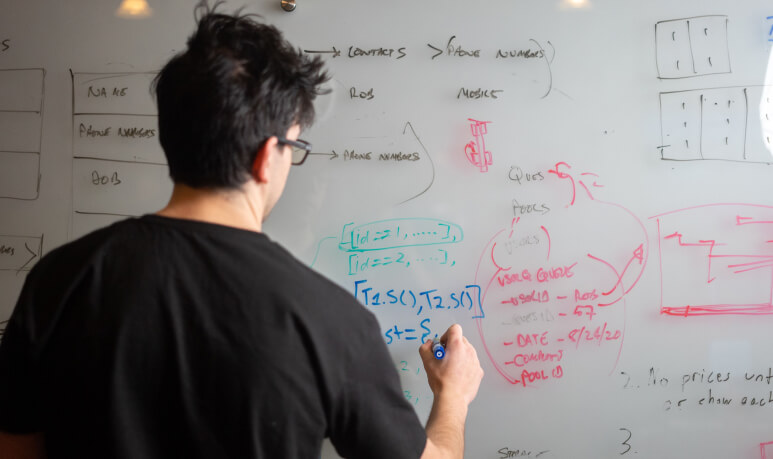 → CONTACTS > (PHONE NUMBERS)
NAME
ROB
MOBILE
PHONE NUMBERS
→ PHONE NUMBERS
JOB
QUES
POOLS
USERS
[Id==1, .....],
[Id==2, ....],
USER QUEUE
[T1.S(), T2.S()]
- USERID - ROB
- 57
st={
- DATE - 8/24/20
- COMMENT
- POOL ID
2. No prices unt
or show each
3.